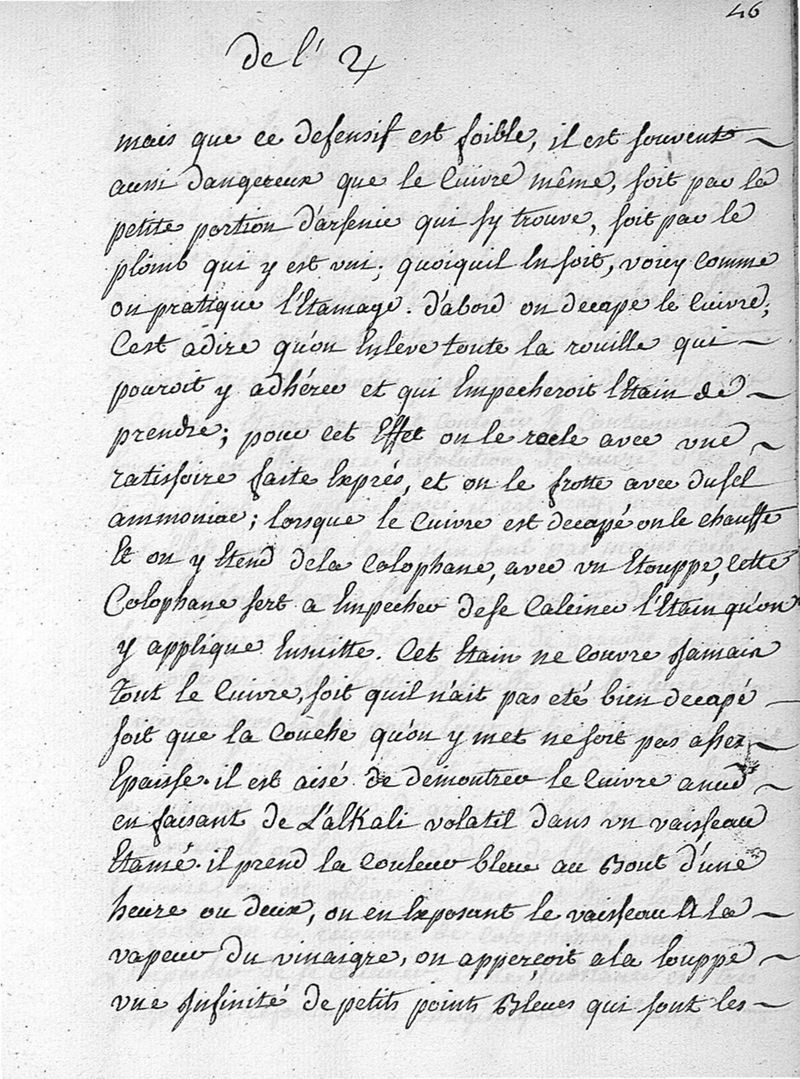 46
de l' ♃
mais que ce defensif est foible, il est souvent
aussi dangereux que le Cuivre même, soit par la
petite portion d'arsenic qui sy trouve, soit par le
plomb qui y est uni; quoiquil En soit, voicy comme
on pratique l'Etamage. d'abord on decape le Cuivre,
C'est adire qu'on Enleve toute la rouille qui
pouroit y adhérer et qui Empecheroit l'Etain de
prendre; pour cet Effet on le racle avec une
ratissoire faite Exprés, et on le frotte avec du sel
ammoniac; lorsque le Cuivre est decapé on le chauffe
Et on y Etend dela Colophane, avec un Etouppe, Cette
Colophane sert a Empecher dese Calciner l'Etain qu'on
y applique Ensuitte. Cet Etain ne Couvre Jamais
tout le Cuivre, soit quil n'ait pas eté bien decapé
soit que la Couche qu'on y met ne soit pas assez
Epaisse. il est aisé de demontrer le Cuivre anud
en faisant de L'alkali volatil dans un vaisseau
Etamé. il prend la Couleur bleue au Bout d'une
heure ou deux, ou en Exposant le vaisseau Et la
vapeur du vinaigre, on apperçoit a la Louppe
une Infinité de petits points Bleues qui sont les